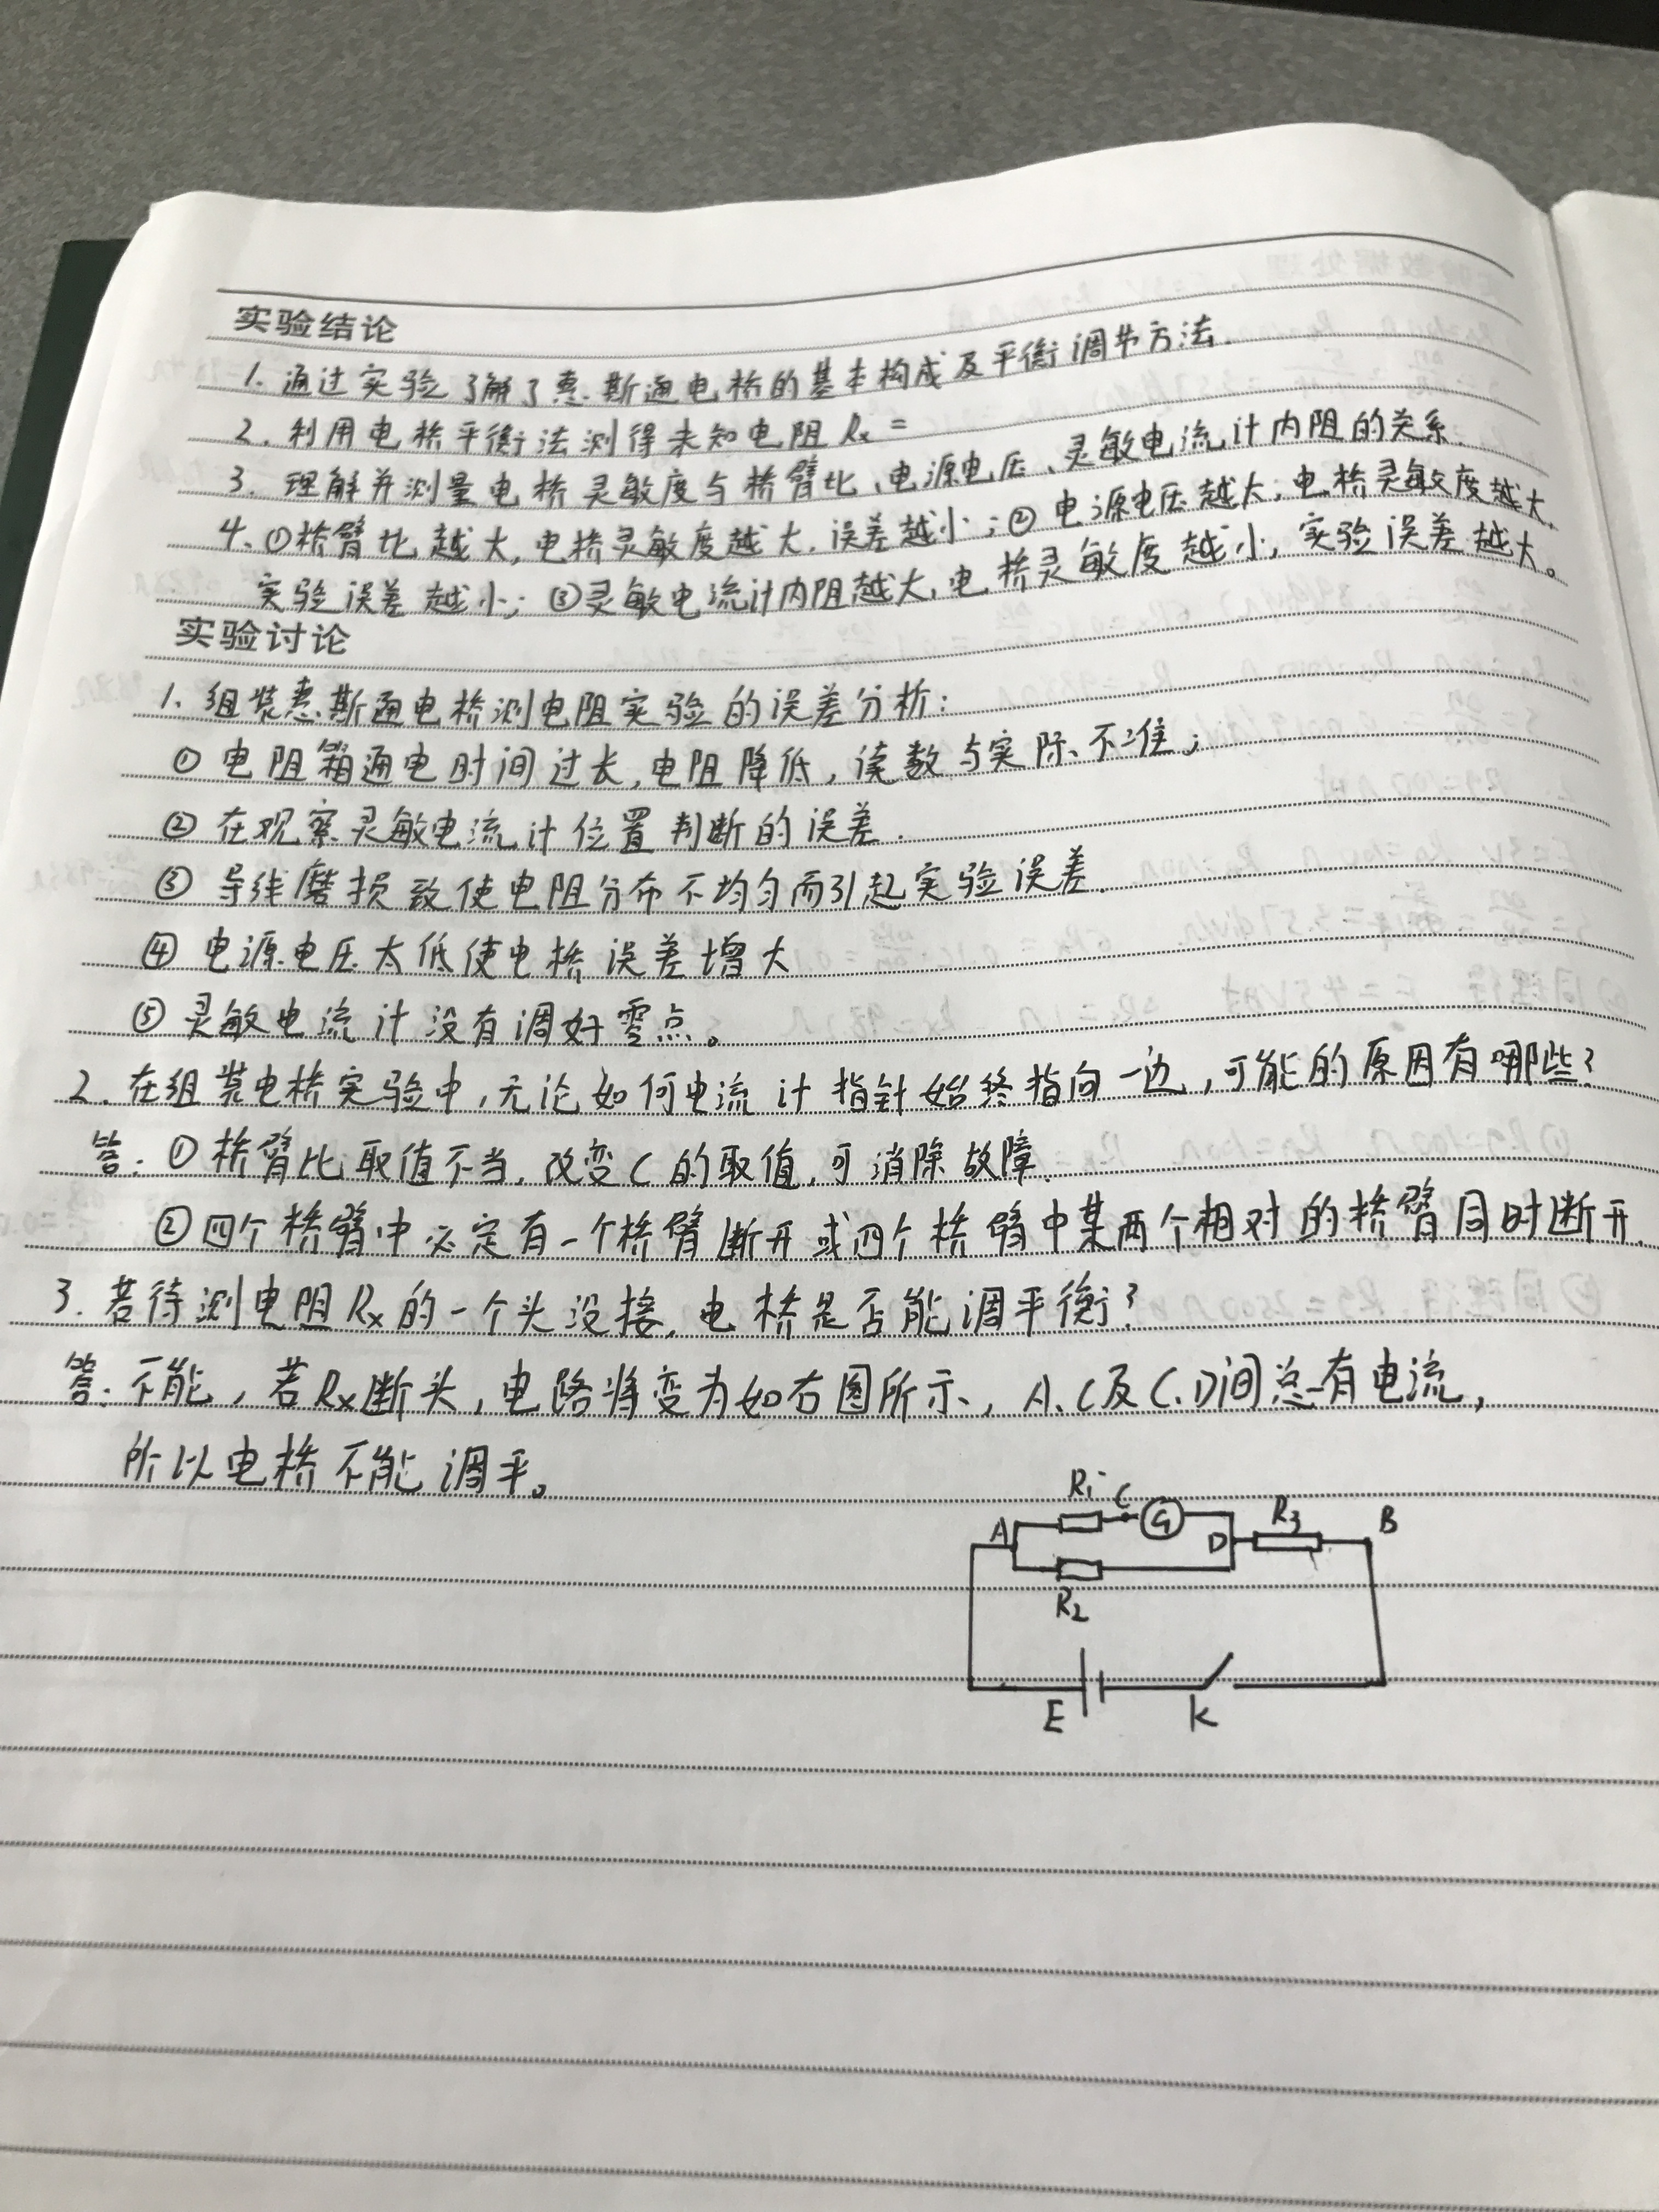 实验结论
1. 通过实验了解了惠斯通电桥的基本构成及平衡调节方法.
2. 利用电桥平衡法测得未知电阻 Rx =
3. 理解并测量电桥灵敏度与桥臂比、电源电压、灵敏电流计内阻的关系.
4. ①桥臂比越大,电桥灵敏度越大,误差越小;②电源电压越大,电桥灵敏度越大,
实验误差越小;③灵敏电流计内阻越大,电桥灵敏度越小,实验误差越大。
实验讨论
1. 组装惠斯通电桥测电阻实验的误差分析:
① 电阻箱通电时间过长,电阻降低,读数与实际不准;
② 在观察灵敏电流计位置判断的误差.
③ 导线磨损致使电阻分布不均匀而引起实验误差.
④ 电源电压太低使电桥误差增大
⑤ 灵敏电流计没有调好零点。
2. 在组装电桥实验中,无论如何电流计指针始终指向一边,可能的原因有哪些?
答: ① 桥臂比取值不当,改变C的取值,可消除故障.
② 四个桥臂中必定有一个桥臂断开或四个桥臂中某两个相对的桥臂同时断开.
3. 若待测电阻Rx的一个头没接,电桥是否能调平衡?
答: 不能,若Rx断头,电路将变为如右图所示,A、C及C、D间总有电流,
所以电桥不能调平。
R1 C G R3 B
A D
R2
E K